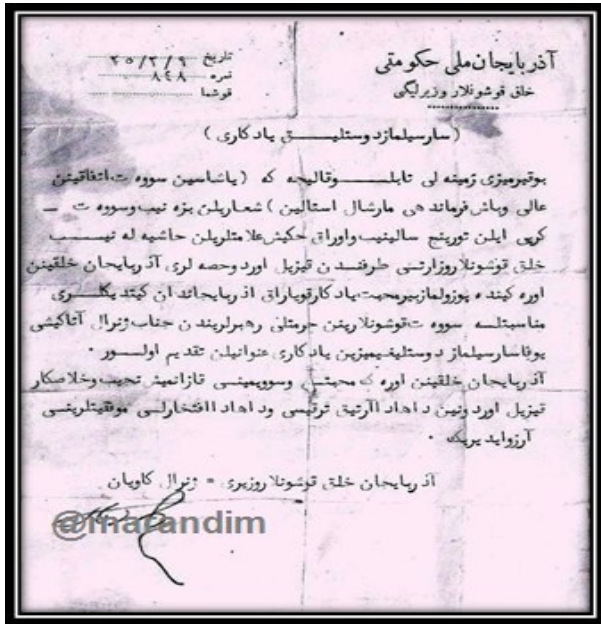 آذربایجان ملی حکومتی
خلق قوشونلار وزیرلیگی
تاریخ ٢٥/٢/٩
نمره ٨٤٨
قوشما
(سارسیلمازدوستلیق یادکاری)
بوقیرمیزی زمینه لی تابلوقالیچه که (یاشاسین سووه ت اتفاقینن
عالی وباش فرماند هی مارشال استالین) شعاریلن بزه نیب وسووه ت
کربی ایلن تورینج سالینیب واوراق حکیش علامتلریلن حاشیه له نیب
خلق قوشونلاروزارتی طرفندن قیزیل اوردوحصه لری آذربایجان خلقینن
اوره کینده پوزولمازبیرمحبت یادکارقویاراق اذربایجاندان کیتدیکلری
مناسبتله سووه ت قوشونلارینن حرمتلی رهبرلریندن جناب ژنرال آتاکیشی
یوفاسارسیلماز دوستلیغیمیزین یادکاری عنوانیلن تقدیم اولور٠
آذربایجان خلقینن اوره ک محبتی وسوویمینی قازانمیش نجیب وخلاصکار
قیزیل اوردونین داهاد اآرتیق ترقیسی وداهاد اافتخارلی موفقیتلرینی
آرزواید یریک٠
آذربایجان خلق قوشونلاروزیری = ژنرال کاویان
@marandim